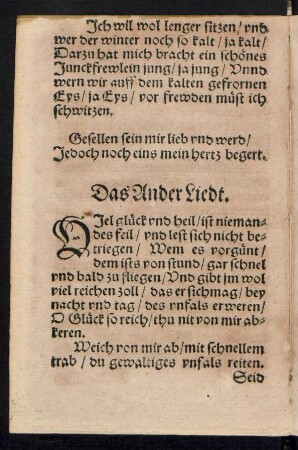 Jch wil wol lenger sitzen / vnd
wer der winter noch so kalt / ja kalt /
Darzu hat mich bracht ein schönes
Junckfrewlein jung / ja jung / Vnnd
wern wir auff dem kalten gefrornen
Eys / ja Eys / vor frewden müst ich
schwitzen.
Gesellen sein mir lieb vnd werd /
Jedoch noch eins mein hertz begert.
Das Ander Liedt.
VJel glück vnd heil / ist nieman-
des feil / vnd lest sich nicht be-
triegen / Wem es vorgünt /
dem ists von stund / gar schnel
vnd bald zu fliegen / Vnd gibt jm wol
viel reichen zoll / das er sichmag / bey
nacht vnd tag / des vnfals erweren /
O Glück so reich / thu nit von mir ab-
keren.
Weich von mir ab / mit schnellem
trab / du gewaltiges vnfals reiten.
Seid